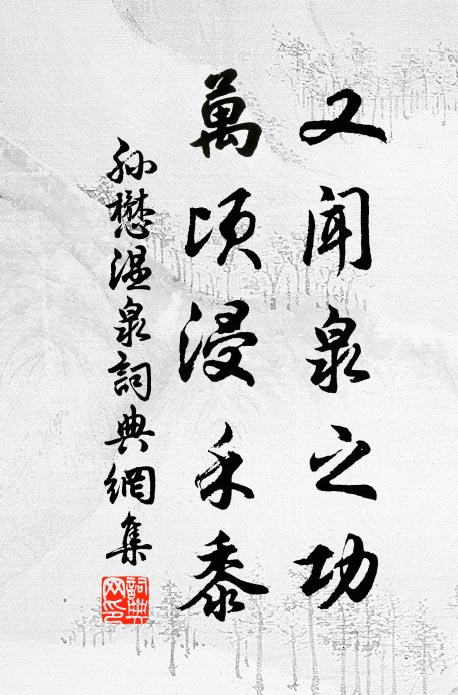 又聞泉之功
萬頃浸禾黍
孫懋溫泉詞典網集
詞典